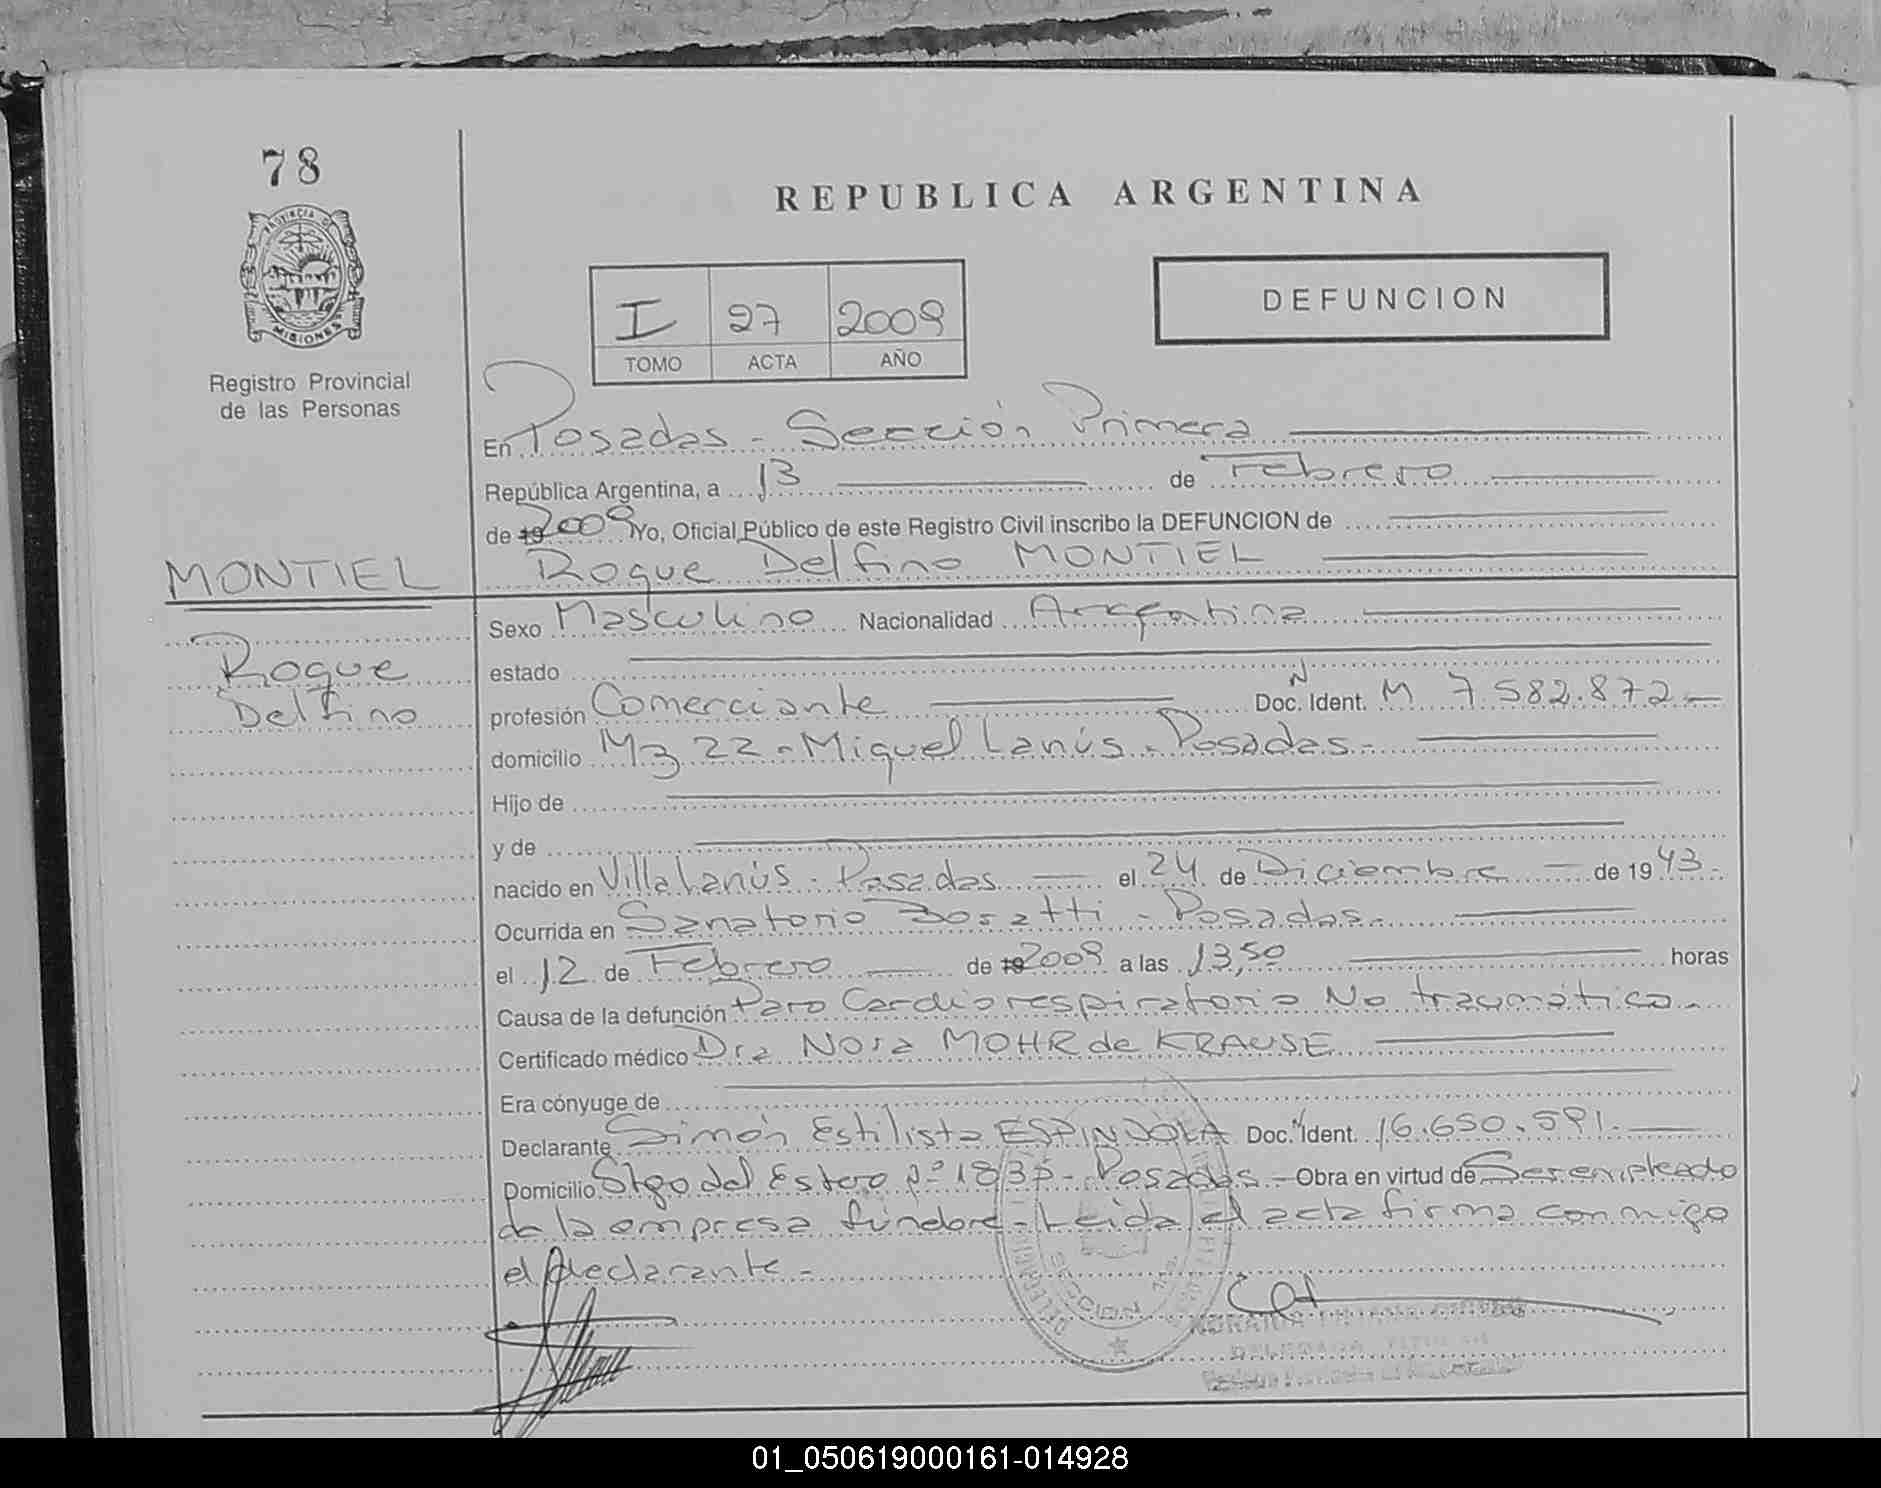 78
PROVINCIA DE
MISIONES
Registro Provincial
de las Personas
REPUBLICA ARGENTINA
I 27 2009
TOMO ACTA AÑO
DEFUNCION
En Posadas - Sección Primera
República Argentina, a 13 de Febrero
de 19 2009 Yo, Oficial Público de este Registro Civil inscribo la DEFUNCION de
MONTIEL
Roque Delfino MONTIEL
Roque
Delfino
Sexo Masculino Nacionalidad Argentina
estado
profesión Comerciante Doc. N Ident. M 7.582.872.-
domicilio Mz 22 - Miguel Lanús - Posadas.-
Hijo de
y de
nacido en Villa Lanús - Posadas el 24 de Diciembre de 1943.-
Ocurrida en Sanatorio Boratti - Posadas.-
el 12 de Febrero de 19 2009 a las 13,50 horas
Causa de la defunción Paro Cardiorespiratorio No traumático.-
Certificado médico Dra Nora MOHR de KRAUSE
Era cónyuge de
Declarante Simón Estilista ESPINDOLA Doc. N Ident. 16.650.591.-
Domicilio Stgo del Estero nº 1835 - Posadas.- Obra en virtud de Ser empleado
de la empresa fúnebre - Leída el acta firma conmigo
el declarante -
SECCION 1ra
01_050619000161-014928